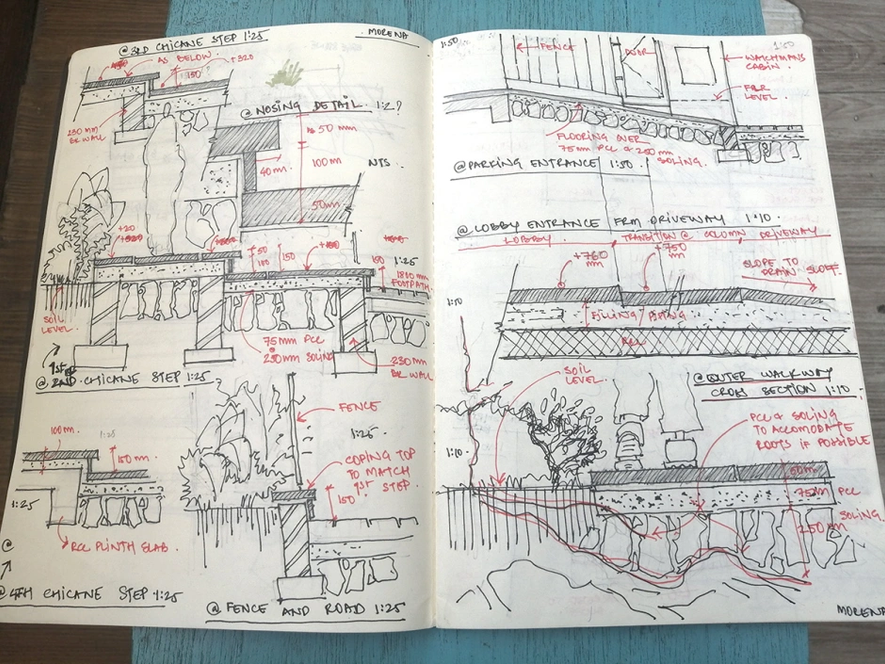 @ 3RD CHICANE STEP 1:25
MORENA
AS BELOW
+320
150
230 mm
BR WALL
@ NOSING DETAIL 1:2?
50 mm
100 mm
40 mm.
NTS
50mm
+20
50
100
150
150
1:25
1800 mm
FOOTPATH
SOIL
LEVEL
75mm PCC
230mm SOLING
230mm
BR WALL
1st
@ 2ND CHICANE STEP 1:25
100mm
1:25
150mm
1:25
RCC PLINTH SLAB.
@
@ 4TH CHICANE STEP 1:25
FENCE
1:25.
COPING TOP
TO MATCH
1st STEP.
150
@ FENCE AND ROAD 1:25
1:50
1:50
FENCE
DOOR
WATCHMANS
CABIN
FLR
LEVEL
FLOORING OVER
75mm PCC & 250 mm
SOLING.
@ PARKING ENTRANCE 1:50
@ LOBBY ENTRANCE FRM DRIVEWAY 1:10.
LOBBY
TRANSITION @ COLUMN
DRIVEWAY
+760
mm
+750
mm
SLOPE TO
DRAIN
1:10
FILLING
RCC
SOIL
LEVEL
@ OUTER WALKWAY
CROSS SECTION 1:10
1:10
PCC & SOLING
TO ACCOMODATE
ROOTS IF POSSIBLE
50mm
75mm PCC
SOLING
250 mm
MORENA